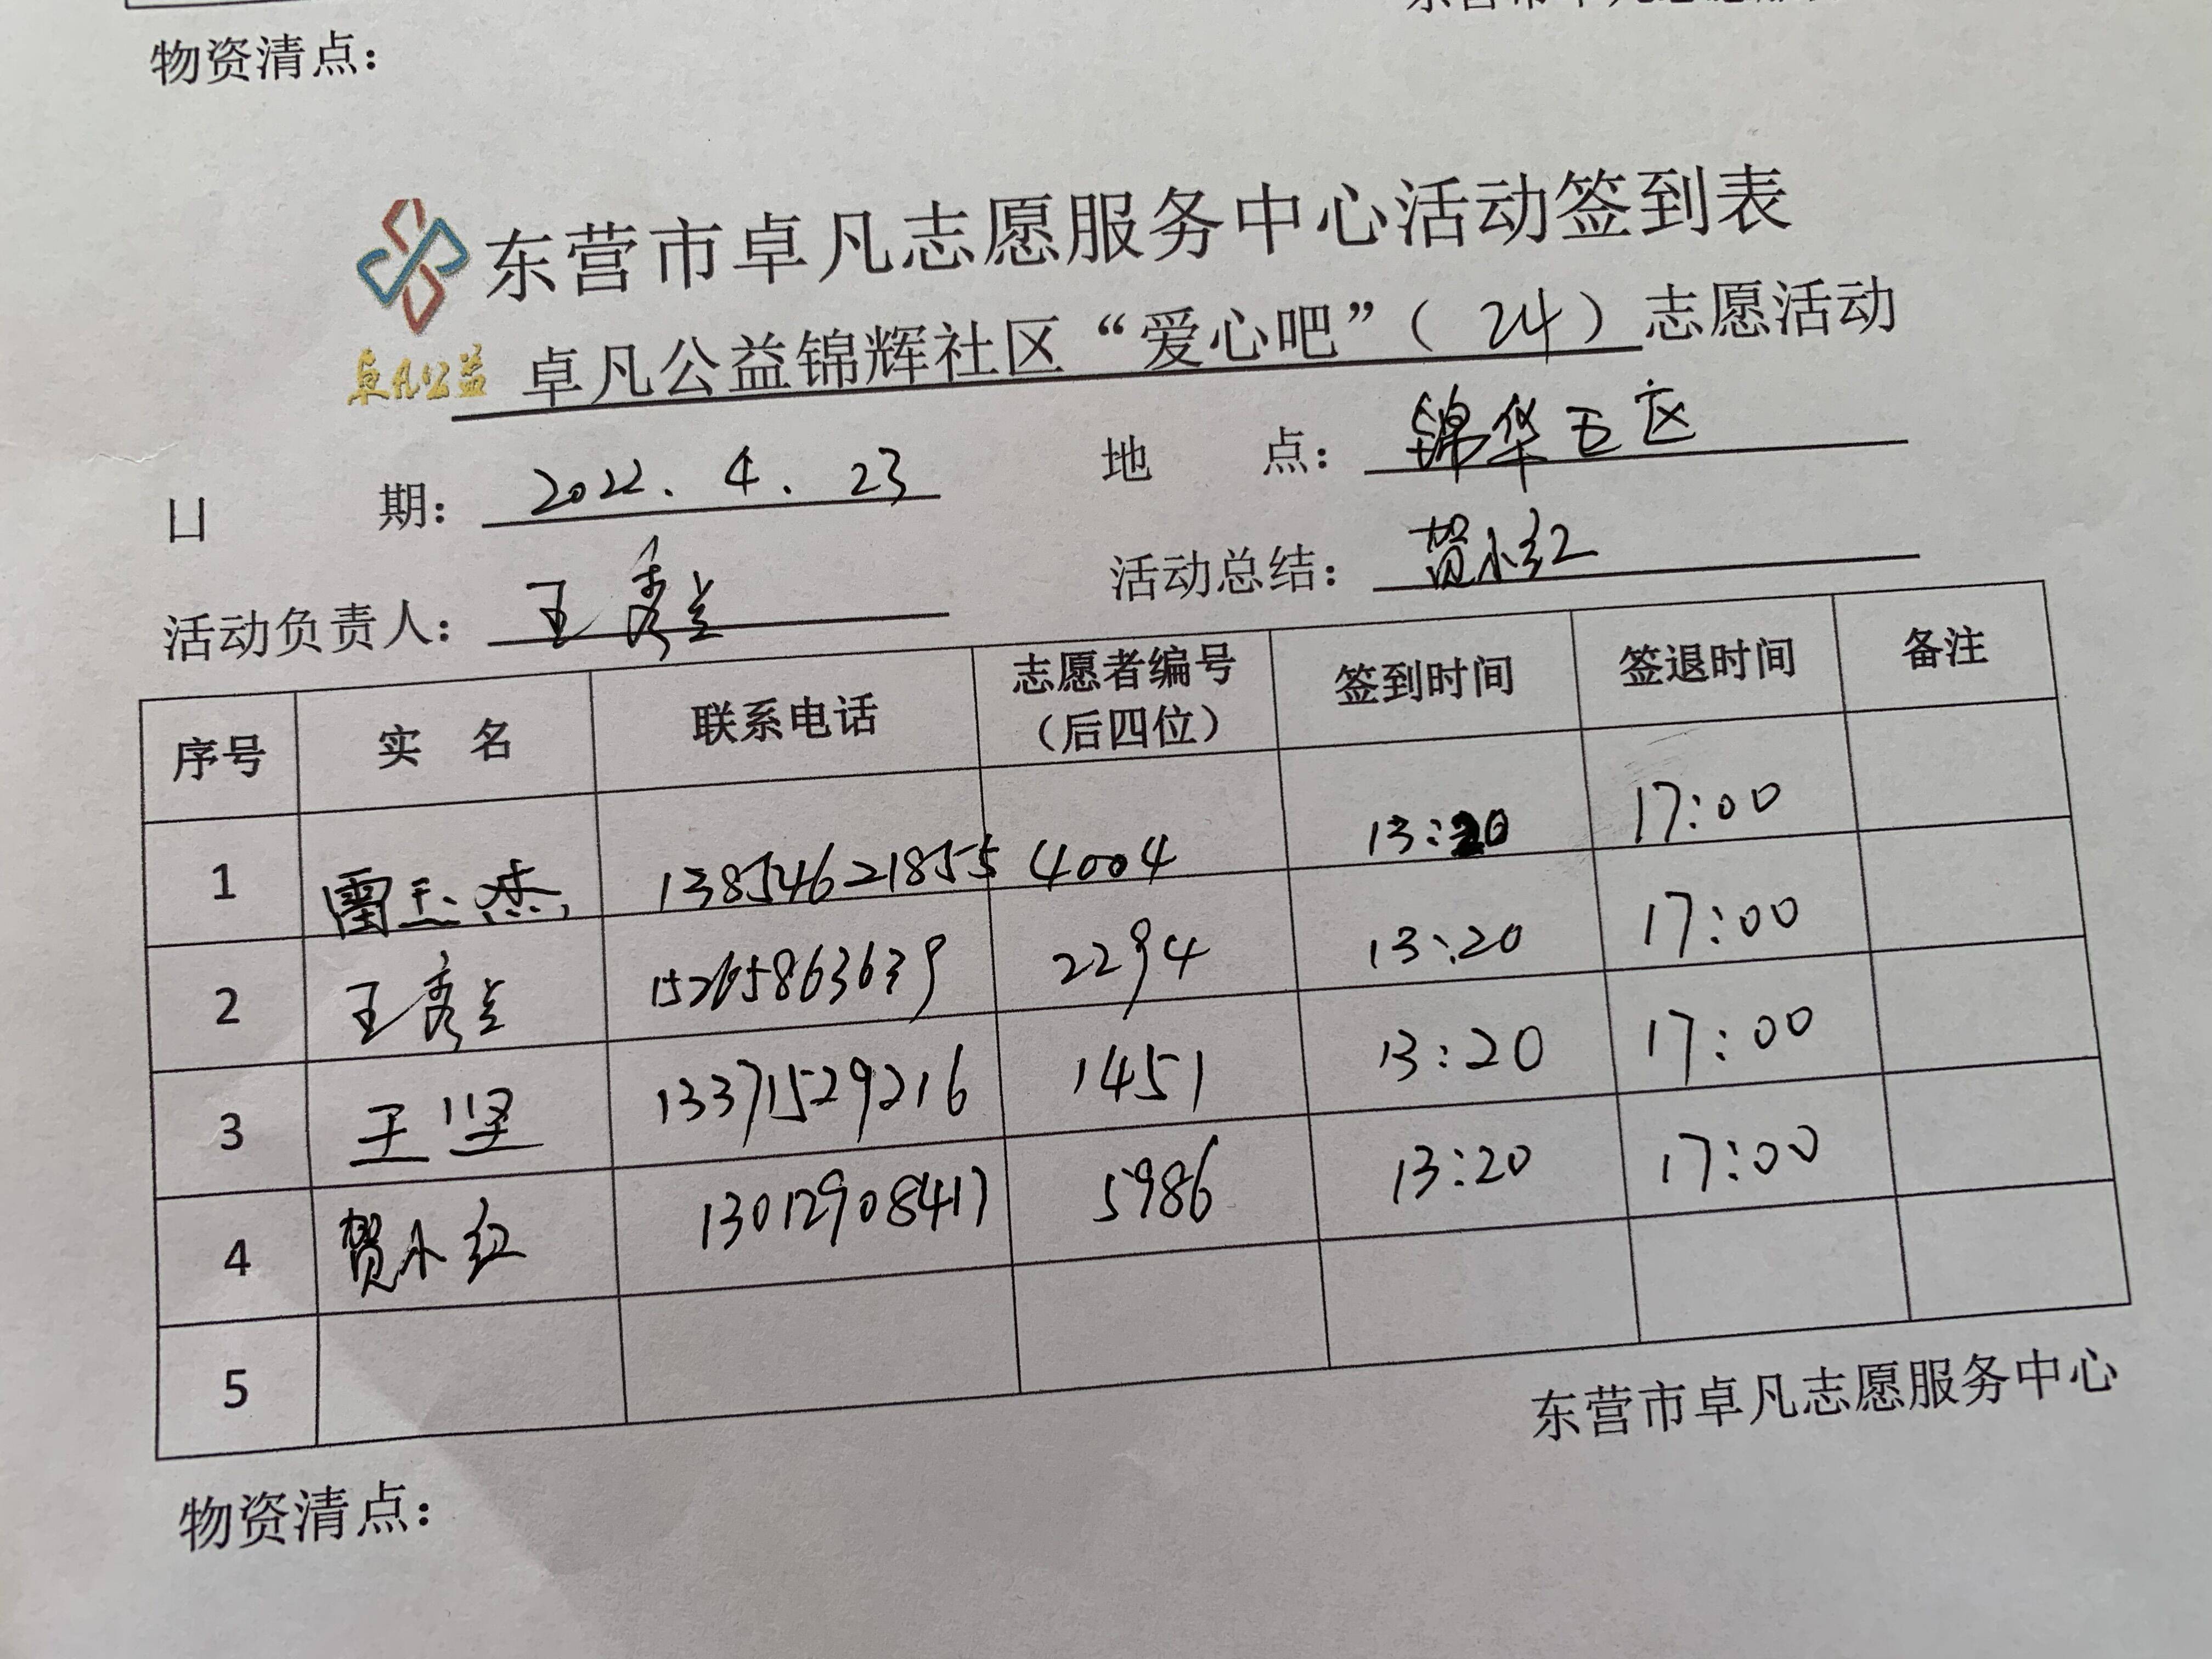 物资清点：
东营市卓凡志愿服务中心活动签到表
卓凡公益 卓凡公益锦辉社区“爱心吧”（ 24 ）志愿活动
期： 2022. 4. 23 地 点： 锦华五区
活动负责人： 王秀兰 活动总结： 贺小红
序号 实 名 联系电话 志愿者编号（后四位） 签到时间 签退时间 备注
1 雷玉杰 13854621855 4004 13:20 17:00
2 王秀兰 15265863639 2294 13:20 17:00
3 王坚 13371529216 1451 13:20 17:00
4 贺小红 13012908417 5986 13:20 17:00
5
东营市卓凡志愿服务中心
物资清点：